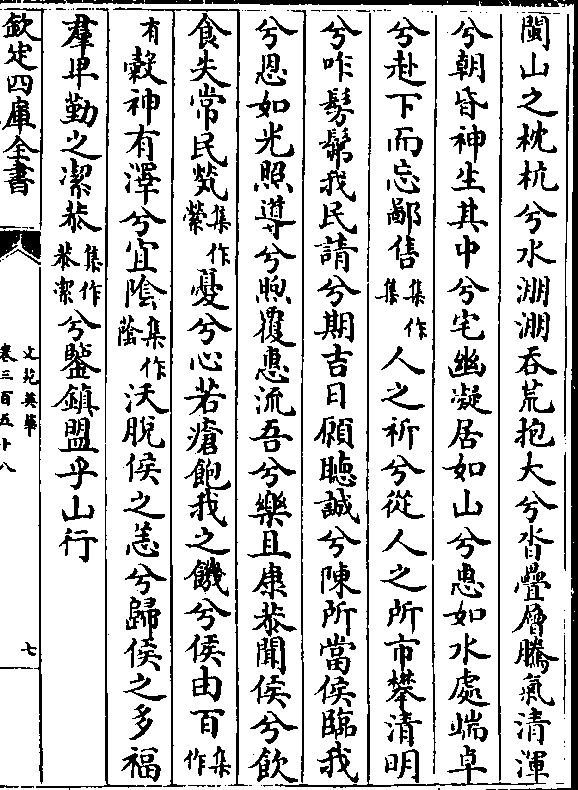 閩山之枕杭兮水淵淵吞荒抱大兮沓疊層騰氣清渾
兮朝昏神生其中兮宅幽凝居如山兮惠如水處端卓
兮赴下而忘鄙售集作集人之祈兮從人之所市攀清明
兮咋髣髴我民請兮期吉日願聽誠兮陳所當侯臨我
兮恩如光照導兮煦覆惠流吾兮樂且康恭聞侯兮飲
食失常民煢集作縈憂兮心若瘡飽我之饑兮侯由百集作
有穀神有澤兮宜陰集作蔭沃脫侯之恙兮歸侯之多福
羣卑勤之潔恭集作恭潔兮鑒鎮盟乎山行
欽定四庫全書
文苑英華
卷三百五十八
七